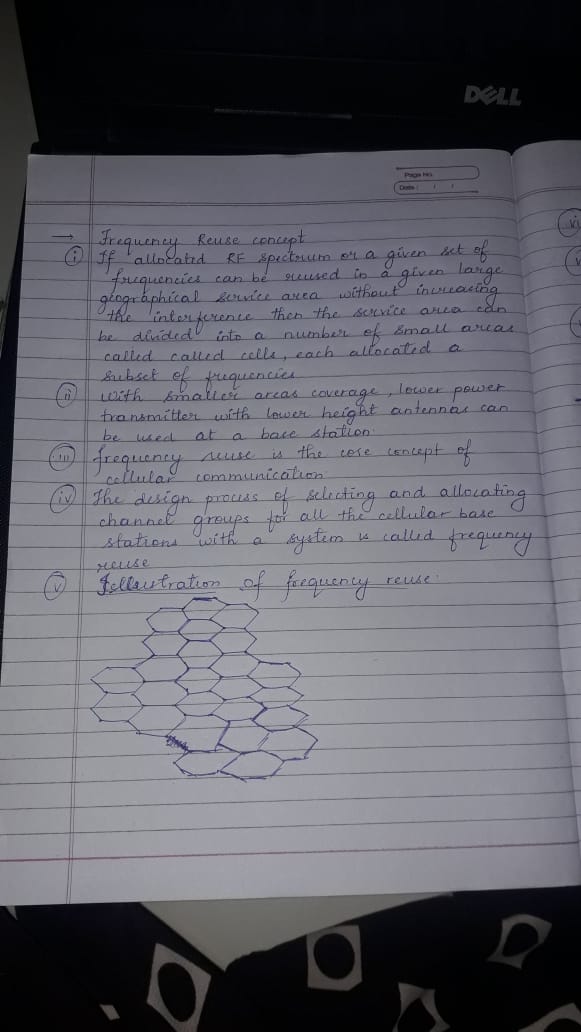 DELL
Page No.
Date : / /
→ Frequency Reuse concept
(i) If allocated RF spectrum or a given set of
frequencies can be reused in a given large
geographical service area without increasing
the interference then the service area can
be divided into a number of small areas
called called cells, each allocated a
subset of frequencies
(ii) With smaller areas coverage, lower power
transmitter with lower height antennas can
be used at a base station.
(iii) frequency reuse is the core concept of
cellular communication
(iv) The design process of selecting and allocating
channel groups for all the cellular base
stations with a system is called frequency
reuse
(v) Illustration of frequency reuse:
vi
v